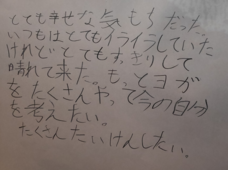 とても幸せな気もちだった。
いつもはとてもイライラしていた
けれどとてもすっきりして
晴れて来た。もっとヨガ
をたくさんやって今の自分
を考えたい。
たくさんたいけんしたい。